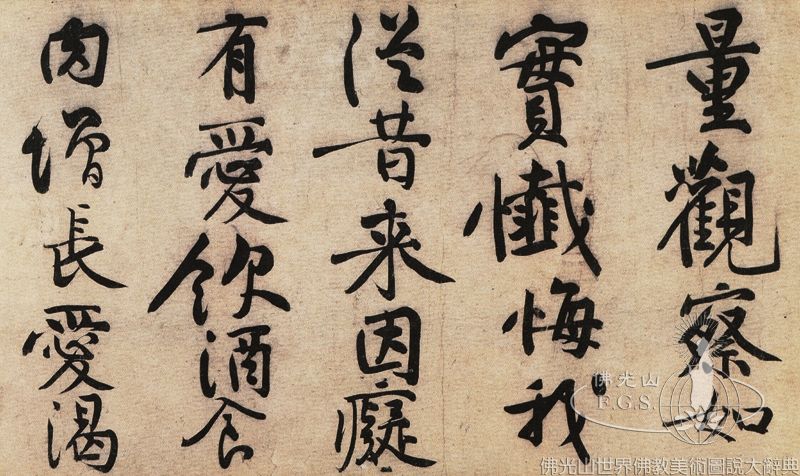 量觀察如
實懺悔我
從昔来因癡
有愛飲酒食
肉增長愛渴
佛光山
F.G.S.
佛光山世界佛教美術圖說大辭典